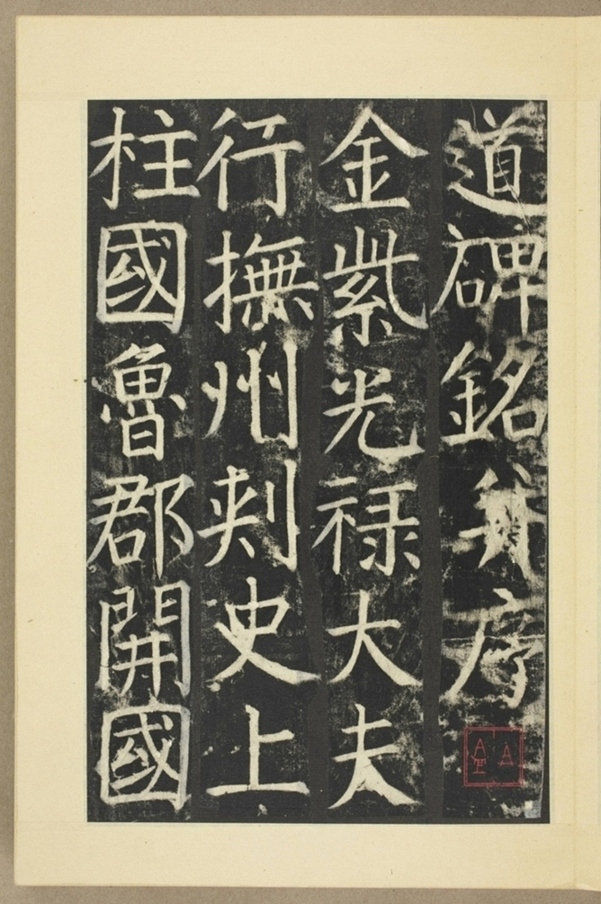 道碑銘并序
金紫光禄大夫
行撫州刾史上
柱國魯郡開國